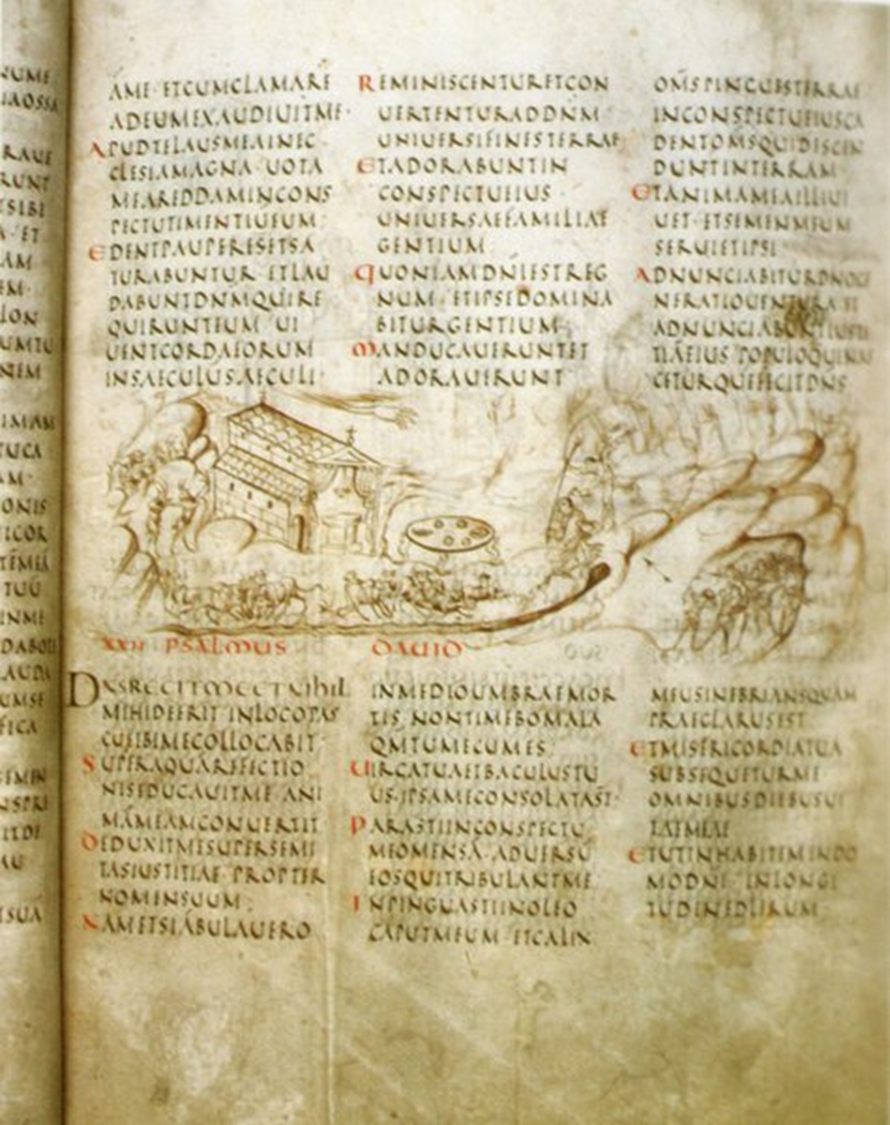 AME ETCUMCLAMARE
ADEUMEXAUDIUITME
APUDTELAUSMEAINEC
CLESIAMAGNA UOTA
MEAREDDAMINCONS
PECTUTIMENTIUEUM
EDENTPAUPERESETSA
TURABUNTUR ETLAU
DABUNTDNMQUIRE
QUIRUNTEUM UI
UENTCORDAEORUM
INSAECULUSAECULI
REMINISCENTURETCON
UERTENTURADDNM
UNIUERSIFINESTERRAE
ETADORABUNTIN
CONSPECTUEIUS
UNIUERSAEFAMILIAE
GENTIUM
QUONIAMDNIESTREG
NUM ETIPSEDOMINA
BITURGENTIUM
MANDUCAUERUNTET
ADORAUERUNT
OMSPINGUESTERRAE
INCONSPECTUEIUSCA
DENTOMSQUIDISCEN
DUNTINTERRAM
ETANIMAMEAILLIUI
UET ETSEMENMEUM
SERUIETIPSI
ADNUNCIABITURDNOGE
NERATIOUENTURA ET
ADNUNCIABUNTIUSTI
TIAEIUS POPULOQUINAS
CETURQUEFECITDNS
XXII PSALMUS DAUID
DNSREGITMEETNIHIL
MIHIDEERIT INLOCOPAS
CUEIBIMECOLLOCABIT
SUPERAQUAREFECTIO
NISEDUCAUITME ANI
MAMEAMCONUERTIT
DEDUXITMESUPERSEMI
TASIUSTITIAE PROPTER
NOMENSUUM
NAMETSIABULAUERO
INMEDIOUMBRAEMOR
TIS NONTIMEBOMALA
QMTUMECUMES
UIRGATUAETBACULUSTU
US IPSAMECONSOLATAST
PARASTIINCONSPECTU
MEOMENSA ADUERSU
EOSQUITRIBULANTME
INPINGUASTIINOLEO
CAPUTMEUM ETCALIX
MEUSINEBRIANSQUAM
PRAECLARUSEST
ETMISERICORDIATUA
SUBSEQUETURME
OMNIBUSDIEBUSUI
TAEMEAE
ETUTINHABITEMINDO
MODNI INLONGI
TUDINEDIERUM